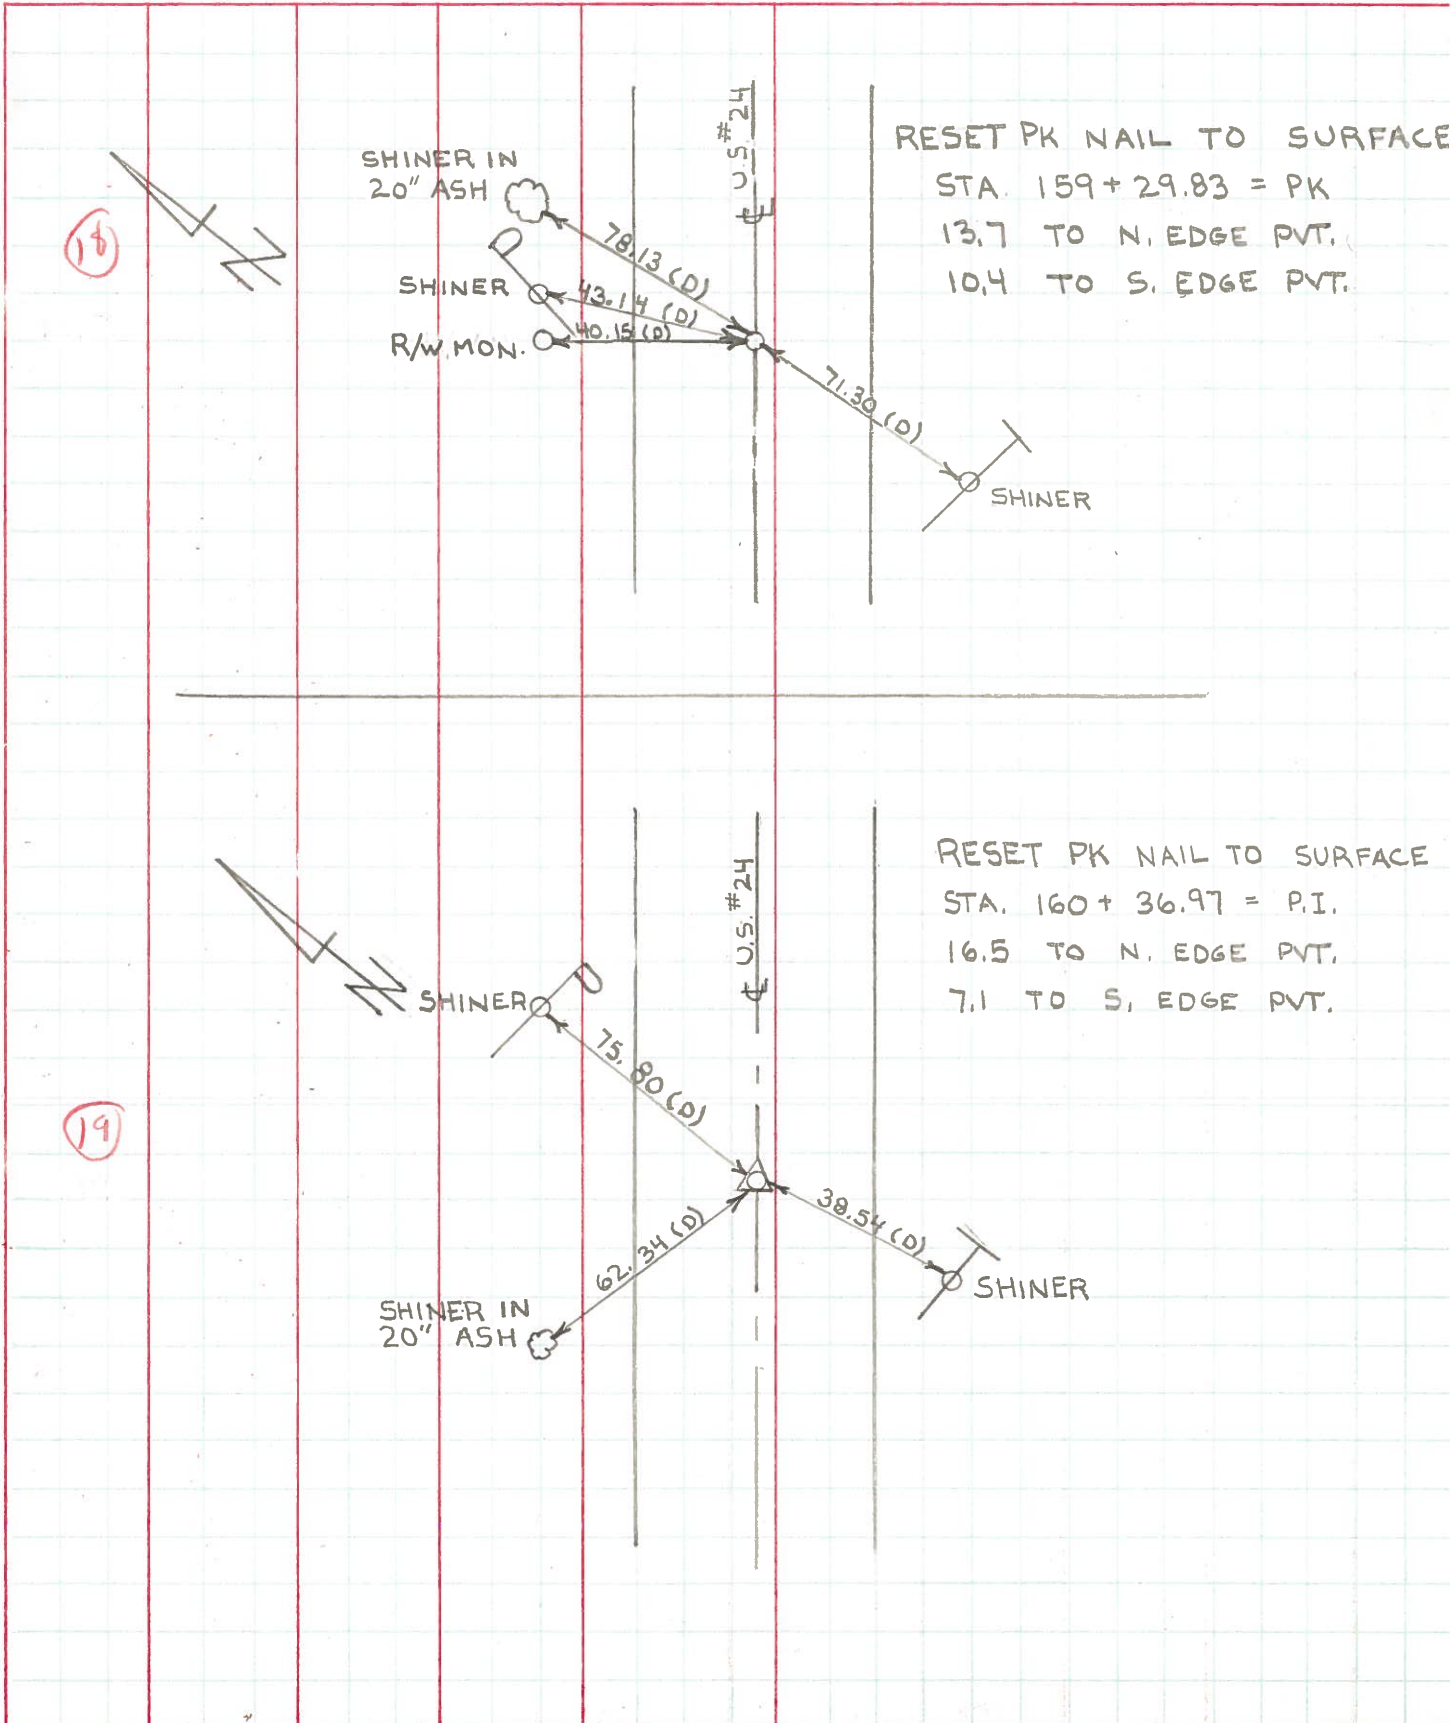 18
SHINER IN
20" ASH
SHINER
R/W MON.
N
℄ U.S. #24
78.13 (D)
43.14 (D)
40.15 (D)
71.30 (D)
SHINER
RESET PK NAIL TO SURFACE
STA. 159 + 29.83 = PK
13.7 TO N. EDGE PVT.
10.4 TO S. EDGE PVT.
19
N
SHINER
℄ U.S. #24
75.80 (D)
62.34 (D)
38.54 (D)
SHINER
SHINER IN
20" ASH
RESET PK NAIL TO SURFACE
STA. 160 + 36.97 = P.I.
16.5 TO N. EDGE PVT.
7.1 TO S. EDGE PVT.